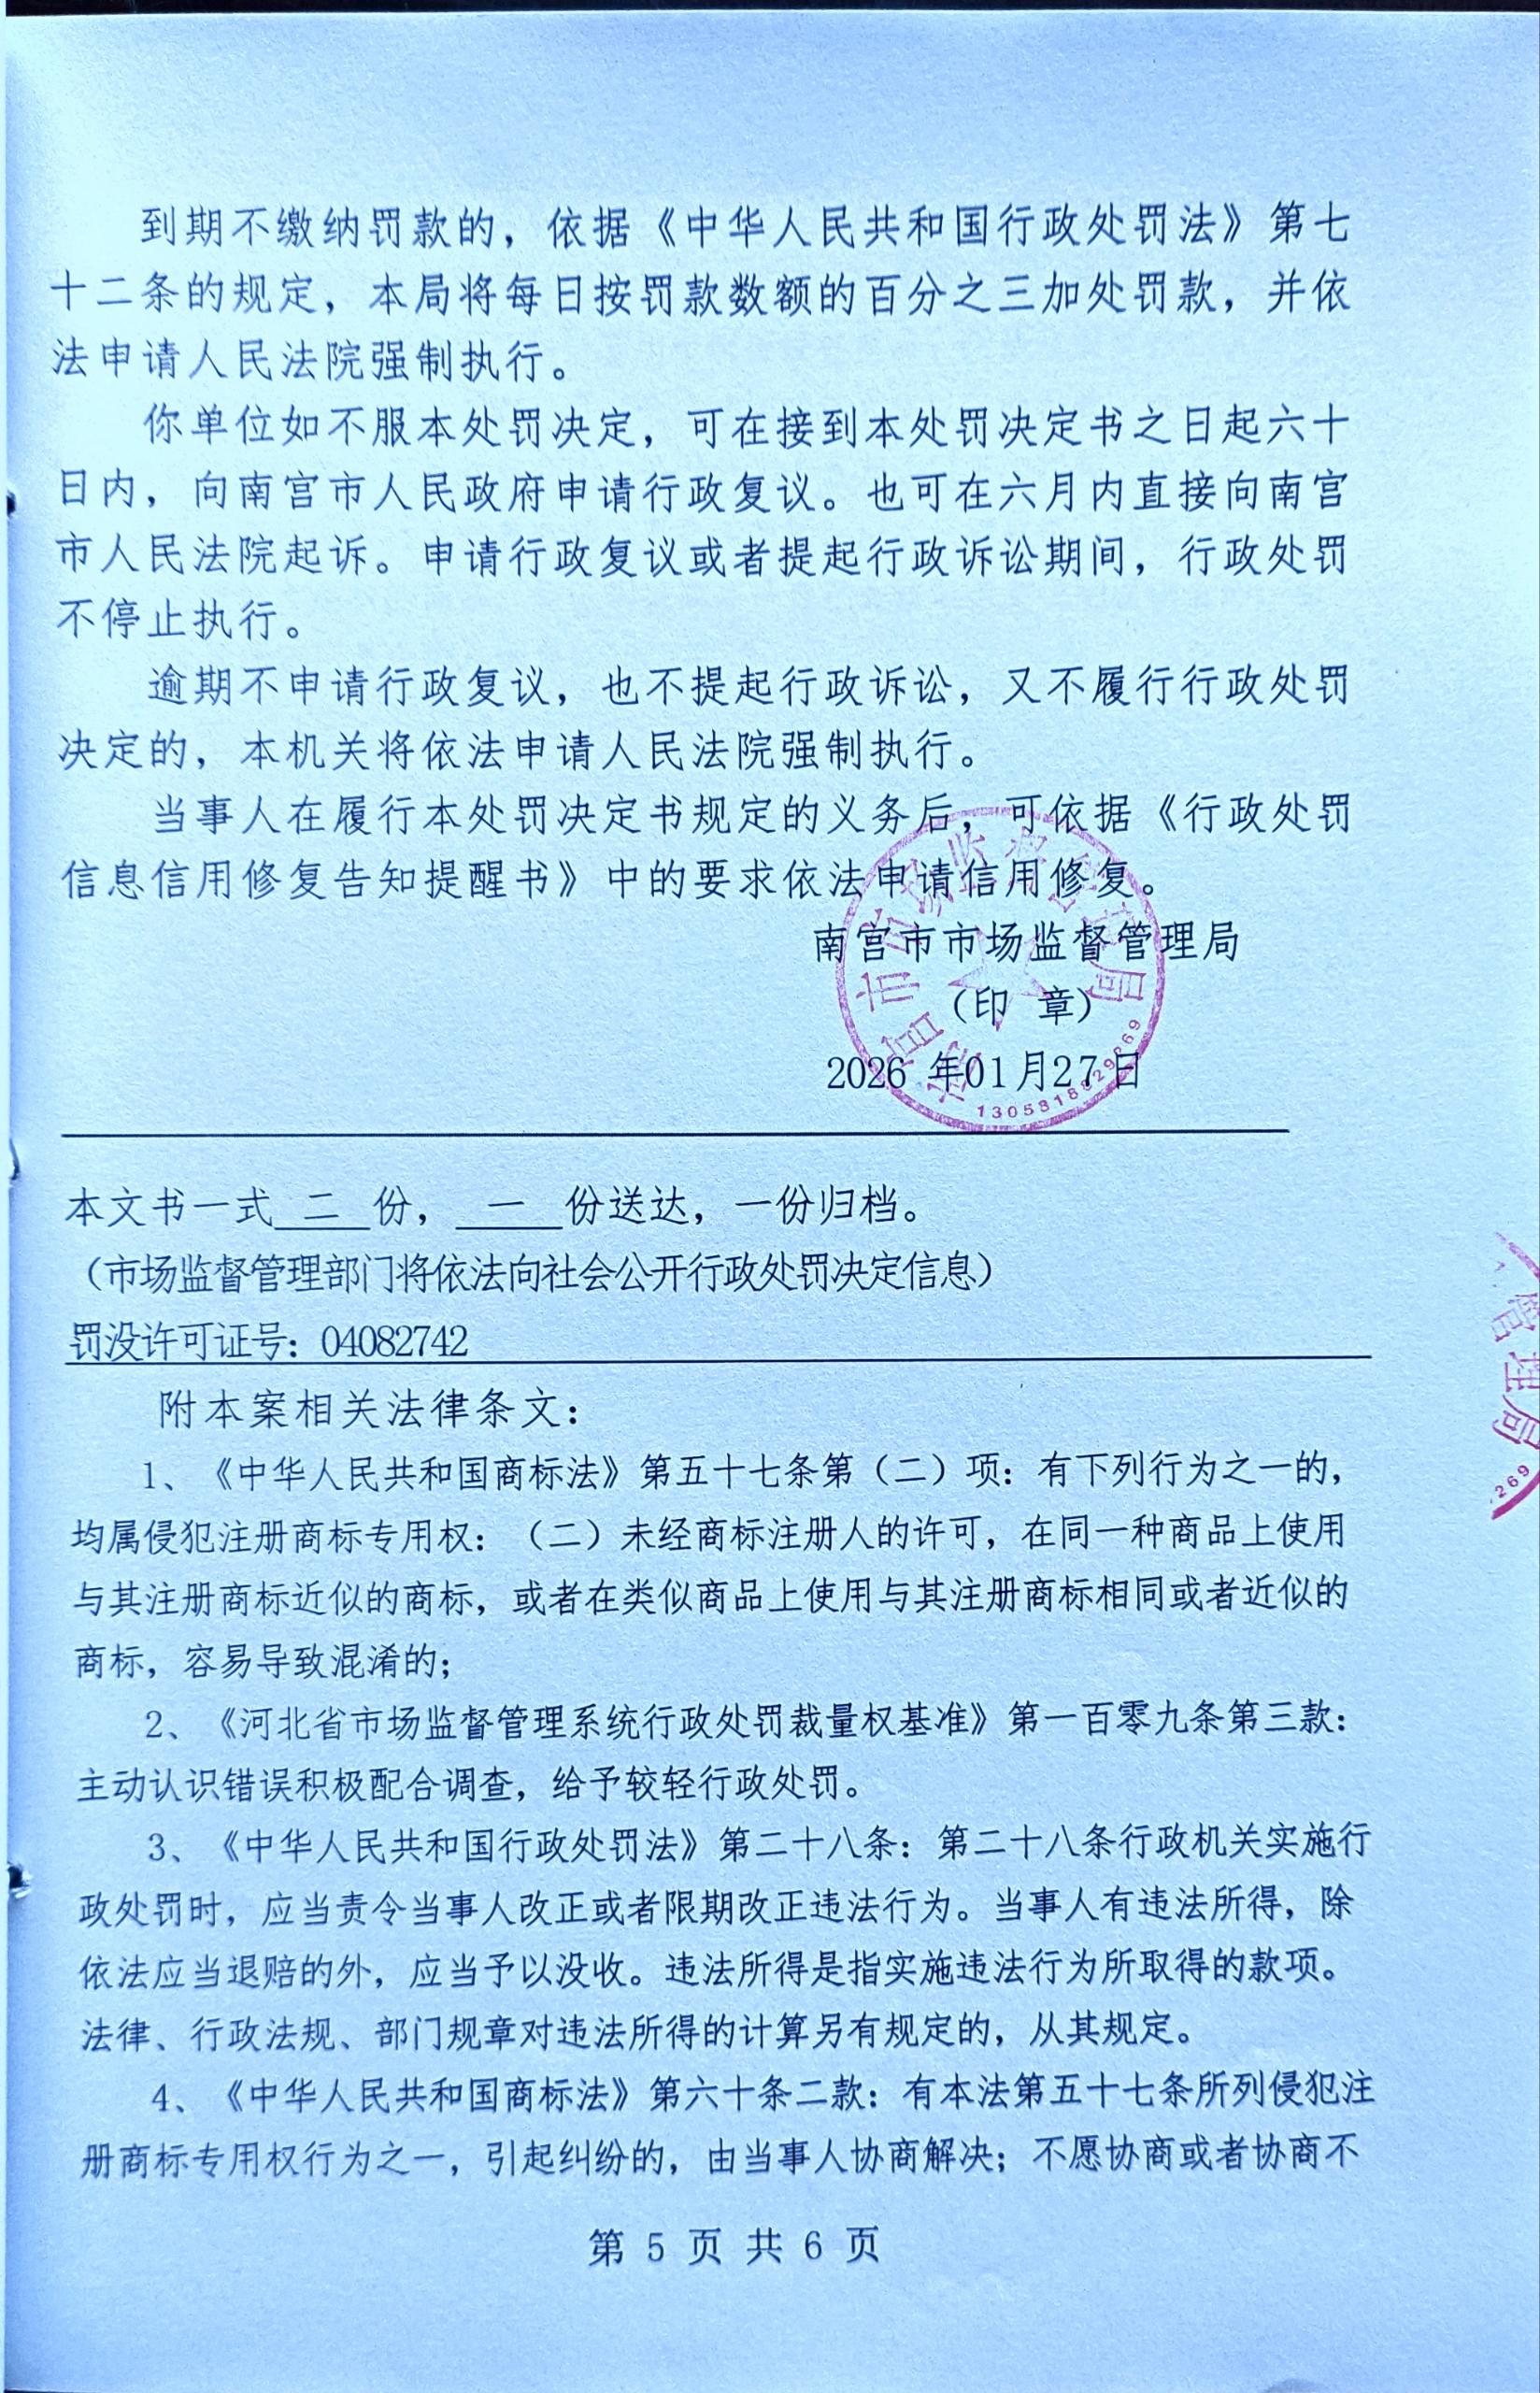 到期不缴纳罚款的，依据《中华人民共和国行政处罚法》第七
十二条的规定，本局将每日按罚款数额的百分之三加处罚款，并依
法申请人民法院强制执行。
你单位如不服本处罚决定，可在接到本处罚决定书之日起六十
日内，向南宫市人民政府申请行政复议。也可在六月内直接向南宫
市人民法院起诉。申请行政复议或者提起行政诉讼期间，行政处罚
不停止执行。
逾期不申请行政复议，也不提起行政诉讼，又不履行行政处罚
决定的，本机关将依法申请人民法院强制执行。
当事人在履行本处罚决定书规定的义务后，可依据《行政处罚
信息信用修复告知提醒书》中的要求依法申请信用修复。
南宫市市场监督管理局
（印 章）
2026 年01月27日
本文书一式 二 份， 一 份送达，一份归档。
（市场监督管理部门将依法向社会公开行政处罚决定信息）
罚没许可证号：04082742
附本案相关法律条文：
1、《中华人民共和国商标法》第五十七条第（二）项：有下列行为之一的，
均属侵犯注册商标专用权：（二）未经商标注册人的许可，在同一种商品上使用
与其注册商标近似的商标，或者在类似商品上使用与其注册商标相同或者近似的
商标，容易导致混淆的；
2、《河北省市场监督管理系统行政处罚裁量权基准》第一百零九条第三款：
主动认识错误积极配合调查，给予较轻行政处罚。
3、《中华人民共和国行政处罚法》第二十八条：第二十八条行政机关实施行
政处罚时，应当责令当事人改正或者限期改正违法行为。当事人有违法所得，除
依法应当退赔的外，应当予以没收。违法所得是指实施违法行为所取得的款项。
法律、行政法规、部门规章对违法所得的计算另有规定的，从其规定。
4、《中华人民共和国商标法》第六十条二款：有本法第五十七条所列侵犯注
册商标专用权行为之一，引起纠纷的，由当事人协商解决；不愿协商或者协商不
第 5 页 共 6 页
南宫市市场监督管理局
管理局
269